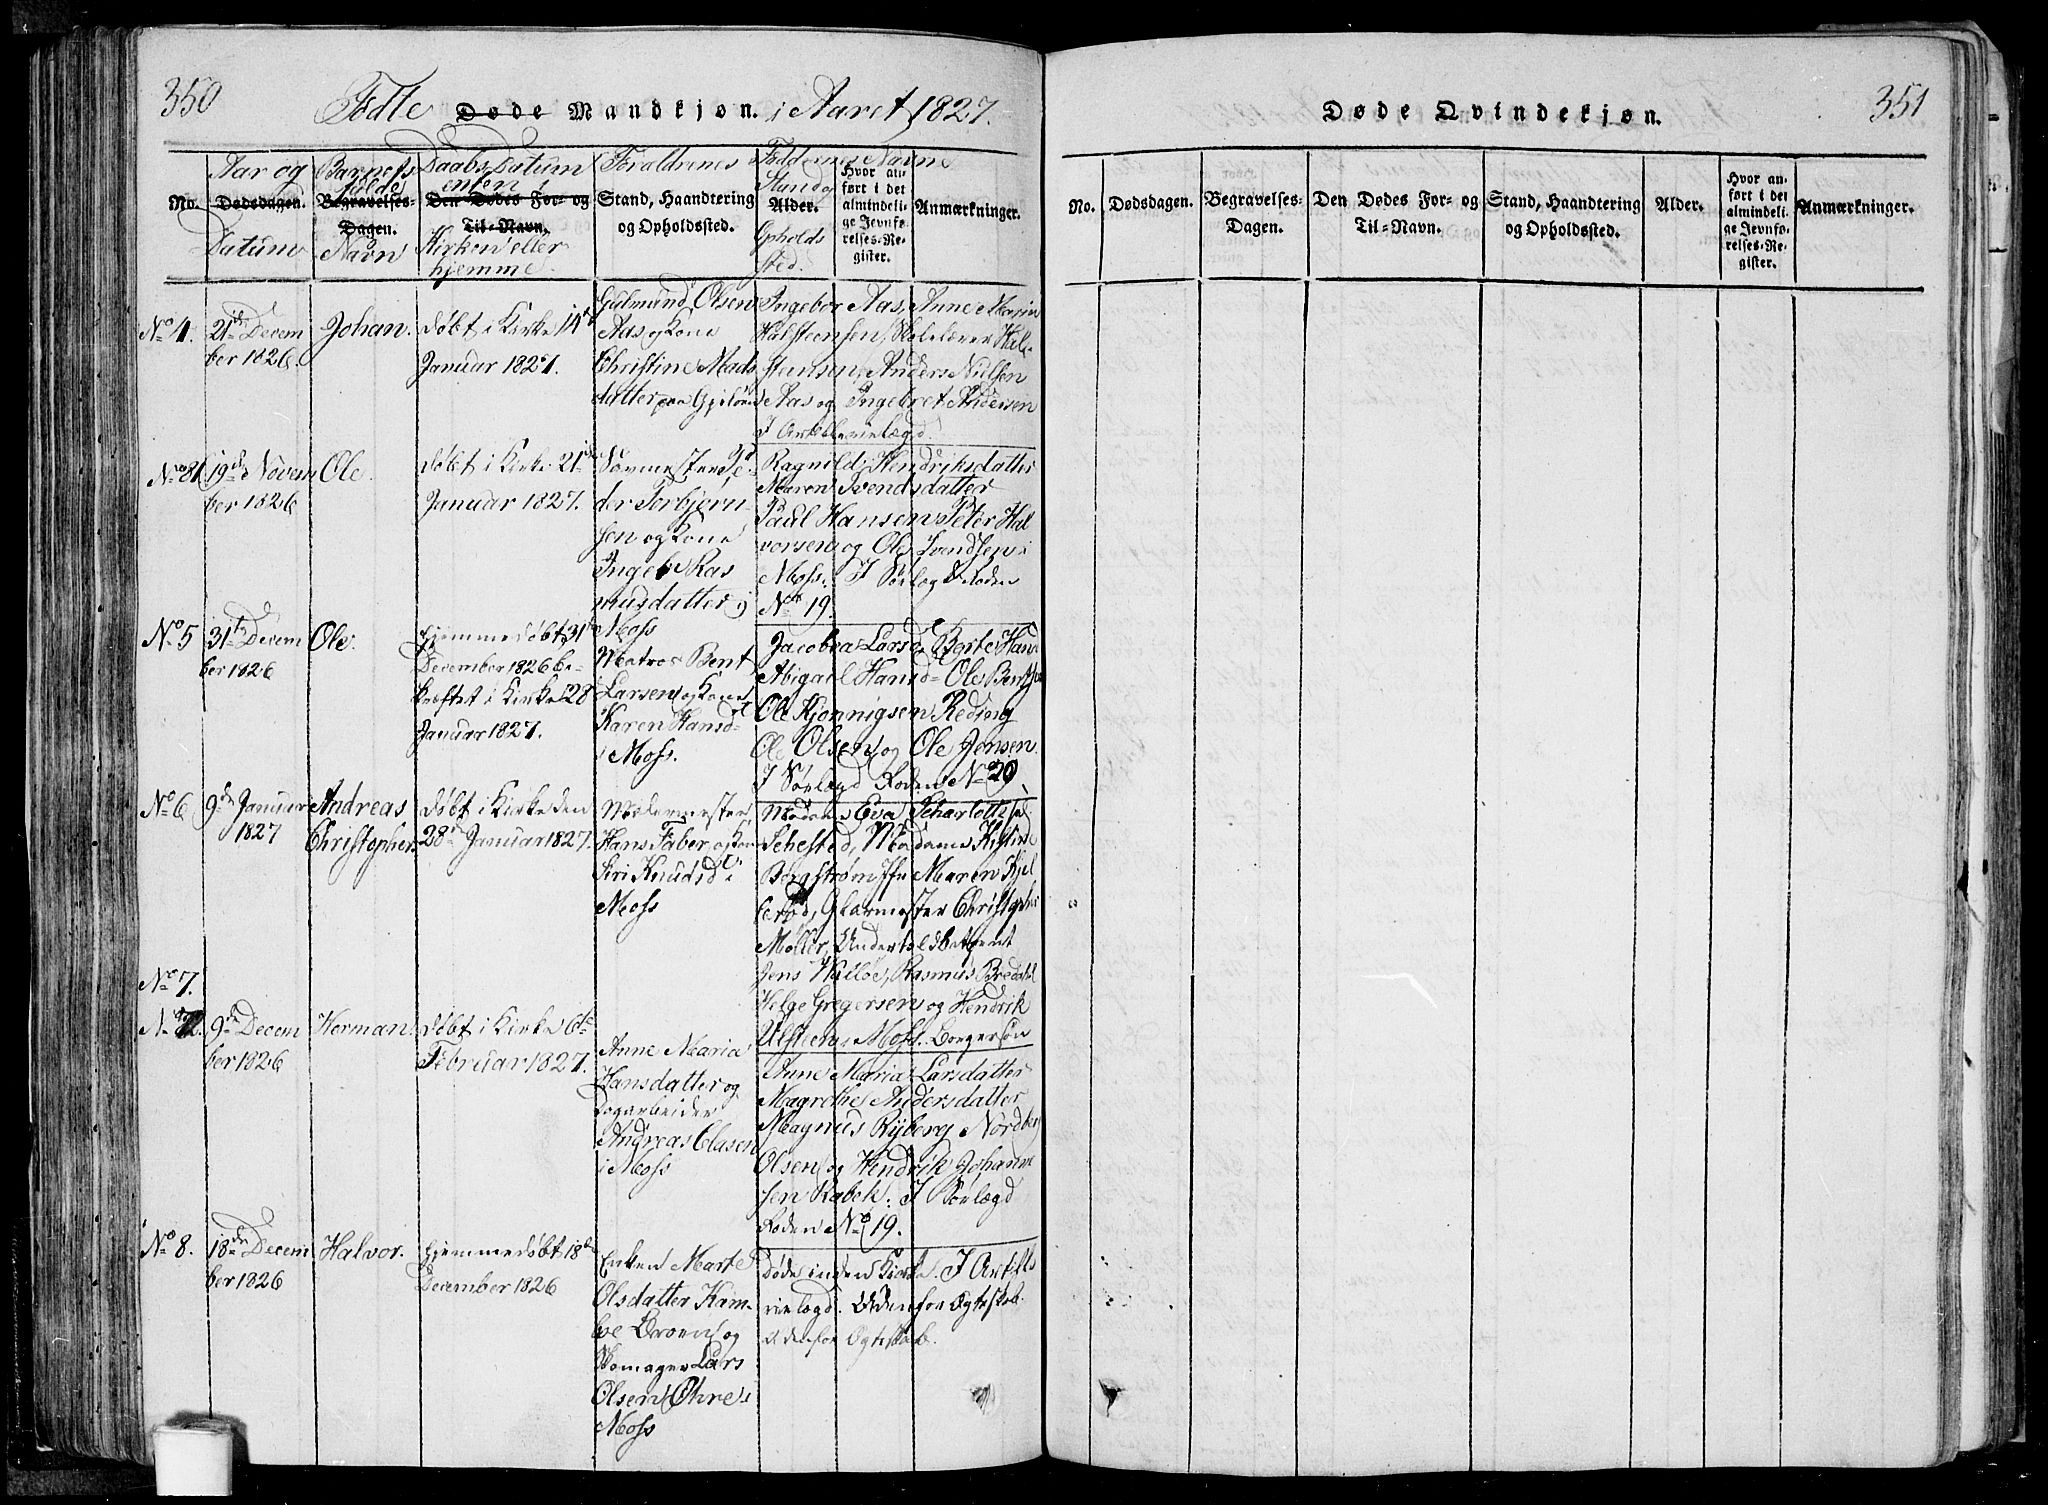 350
Fødte Døde Mandkjøn. i Aaret 1827.
No.
Aar og
Dødsdagen.
Datum
Barnets
fulde
Begravelses-
Dagen.
Navn
Daabs Datum
enten i
Den Dødes For- og
Til-Navn.
Kirken eller
hjemme.
Foraldrenes
Stand, Haandtering
og Opholdsted.
Faddernes Navne
Stand og
Alder.
Opholds
sted.
Hvor an-
ført i det
almindeli-
ge Jevnfø-
relses-Re-
gister.
Anmærkninger.
No 4.
21de Decem
ber 1826.
Johan.
døbt i Kirke 14d
Januar 1827.
Gulmund Olsen
Aas og Kone
Christine Mads
datter paa Gjeløen
Ingebor Aas, Anne Marin
Halsteensen, Skolelærer Hal-
stensen, Anders Nielsen
Aas og Ingebret Andersen
I Artellerielægd.
19de Novem
ber 1826
Ole.
døbt i Kirke 21de
Januar 1827.
der Torbjørn-
sen og Kone
Ingeb Ras
musdatter i
Moss
Ragnild Hendriksdatter
Maren Svendsdatter
Paul Hansen Peter Hal
vorsen og Ole Svendsen i
Moss. I Sølægd Roden
No 19.
No 5
31te Decem
ber 1826
Ole.
hjemmedøbt 31te
December 1826 be-
kræftet i Kirke 28
Januar 1827.
Matros Bent
Larsen og Kone
Karen Hansd=
i Moss.
Jacobea Larsd Berte Hansd
Abigael Hansd= Ole Bentsen
Ole Kjønnigsen Reding
Ole Olsen og Ole Jensen.
I Søelægd Roden No 29
No 6
9de Januar
1827
Andreas
Christopher.
døbt i Kirke den
28de Januar 1827.
Hans Faber, og Kone
Siri Knudsd i
Moss
Madam Eva Scharlotte
Sehested, Madame Kistine
Borgstrøm Jfr Maren Kjel
lerød, Glarmester Christopher
Møller, Undertoldbetjent
Jens Hulloe, Rasmus Bredahl
Helge Gregersen og Hendrik
Ulsteen i Moss. Borgersøn
No 7.
9de Decem
ber 1826
Herman.
døbt i Kirke 6te
Februar 1827.
Anne Maria
Hansdatter og
Logarbeider
Andreas Clasen
i Moss
Anne Maria Larsdatter
Magrethe Andersdatter
Magnus Ryberg Nordberg
Olsen og Hendrik Johanne
sen Rabek. I Søelægd
Roden No 19.
No 8.
18de Decem
ber 1826
Halvor.
hjemmedøbt 18de
December 1826
Enken Marte
Olsdatter Kam-
boe Broen og
Skomager Lars
Olsen Øhre i
Moss
døde inden Kirke. I Artelle
rielægd. Udenfor Ægteskab.
udenfor Ægteskab.
Døde Qvindekjøn.
351
No.
Dødsdagen.
Begravelses-
Dagen.
Den Dødes For- og
Til-Navn.
Stand, Haandtering
og Opholdsted.
Alder.
Hvor an-
ført i det
almindeli-
ge Jevnfø-
relses-Re-
gister.
Anmærkninger.